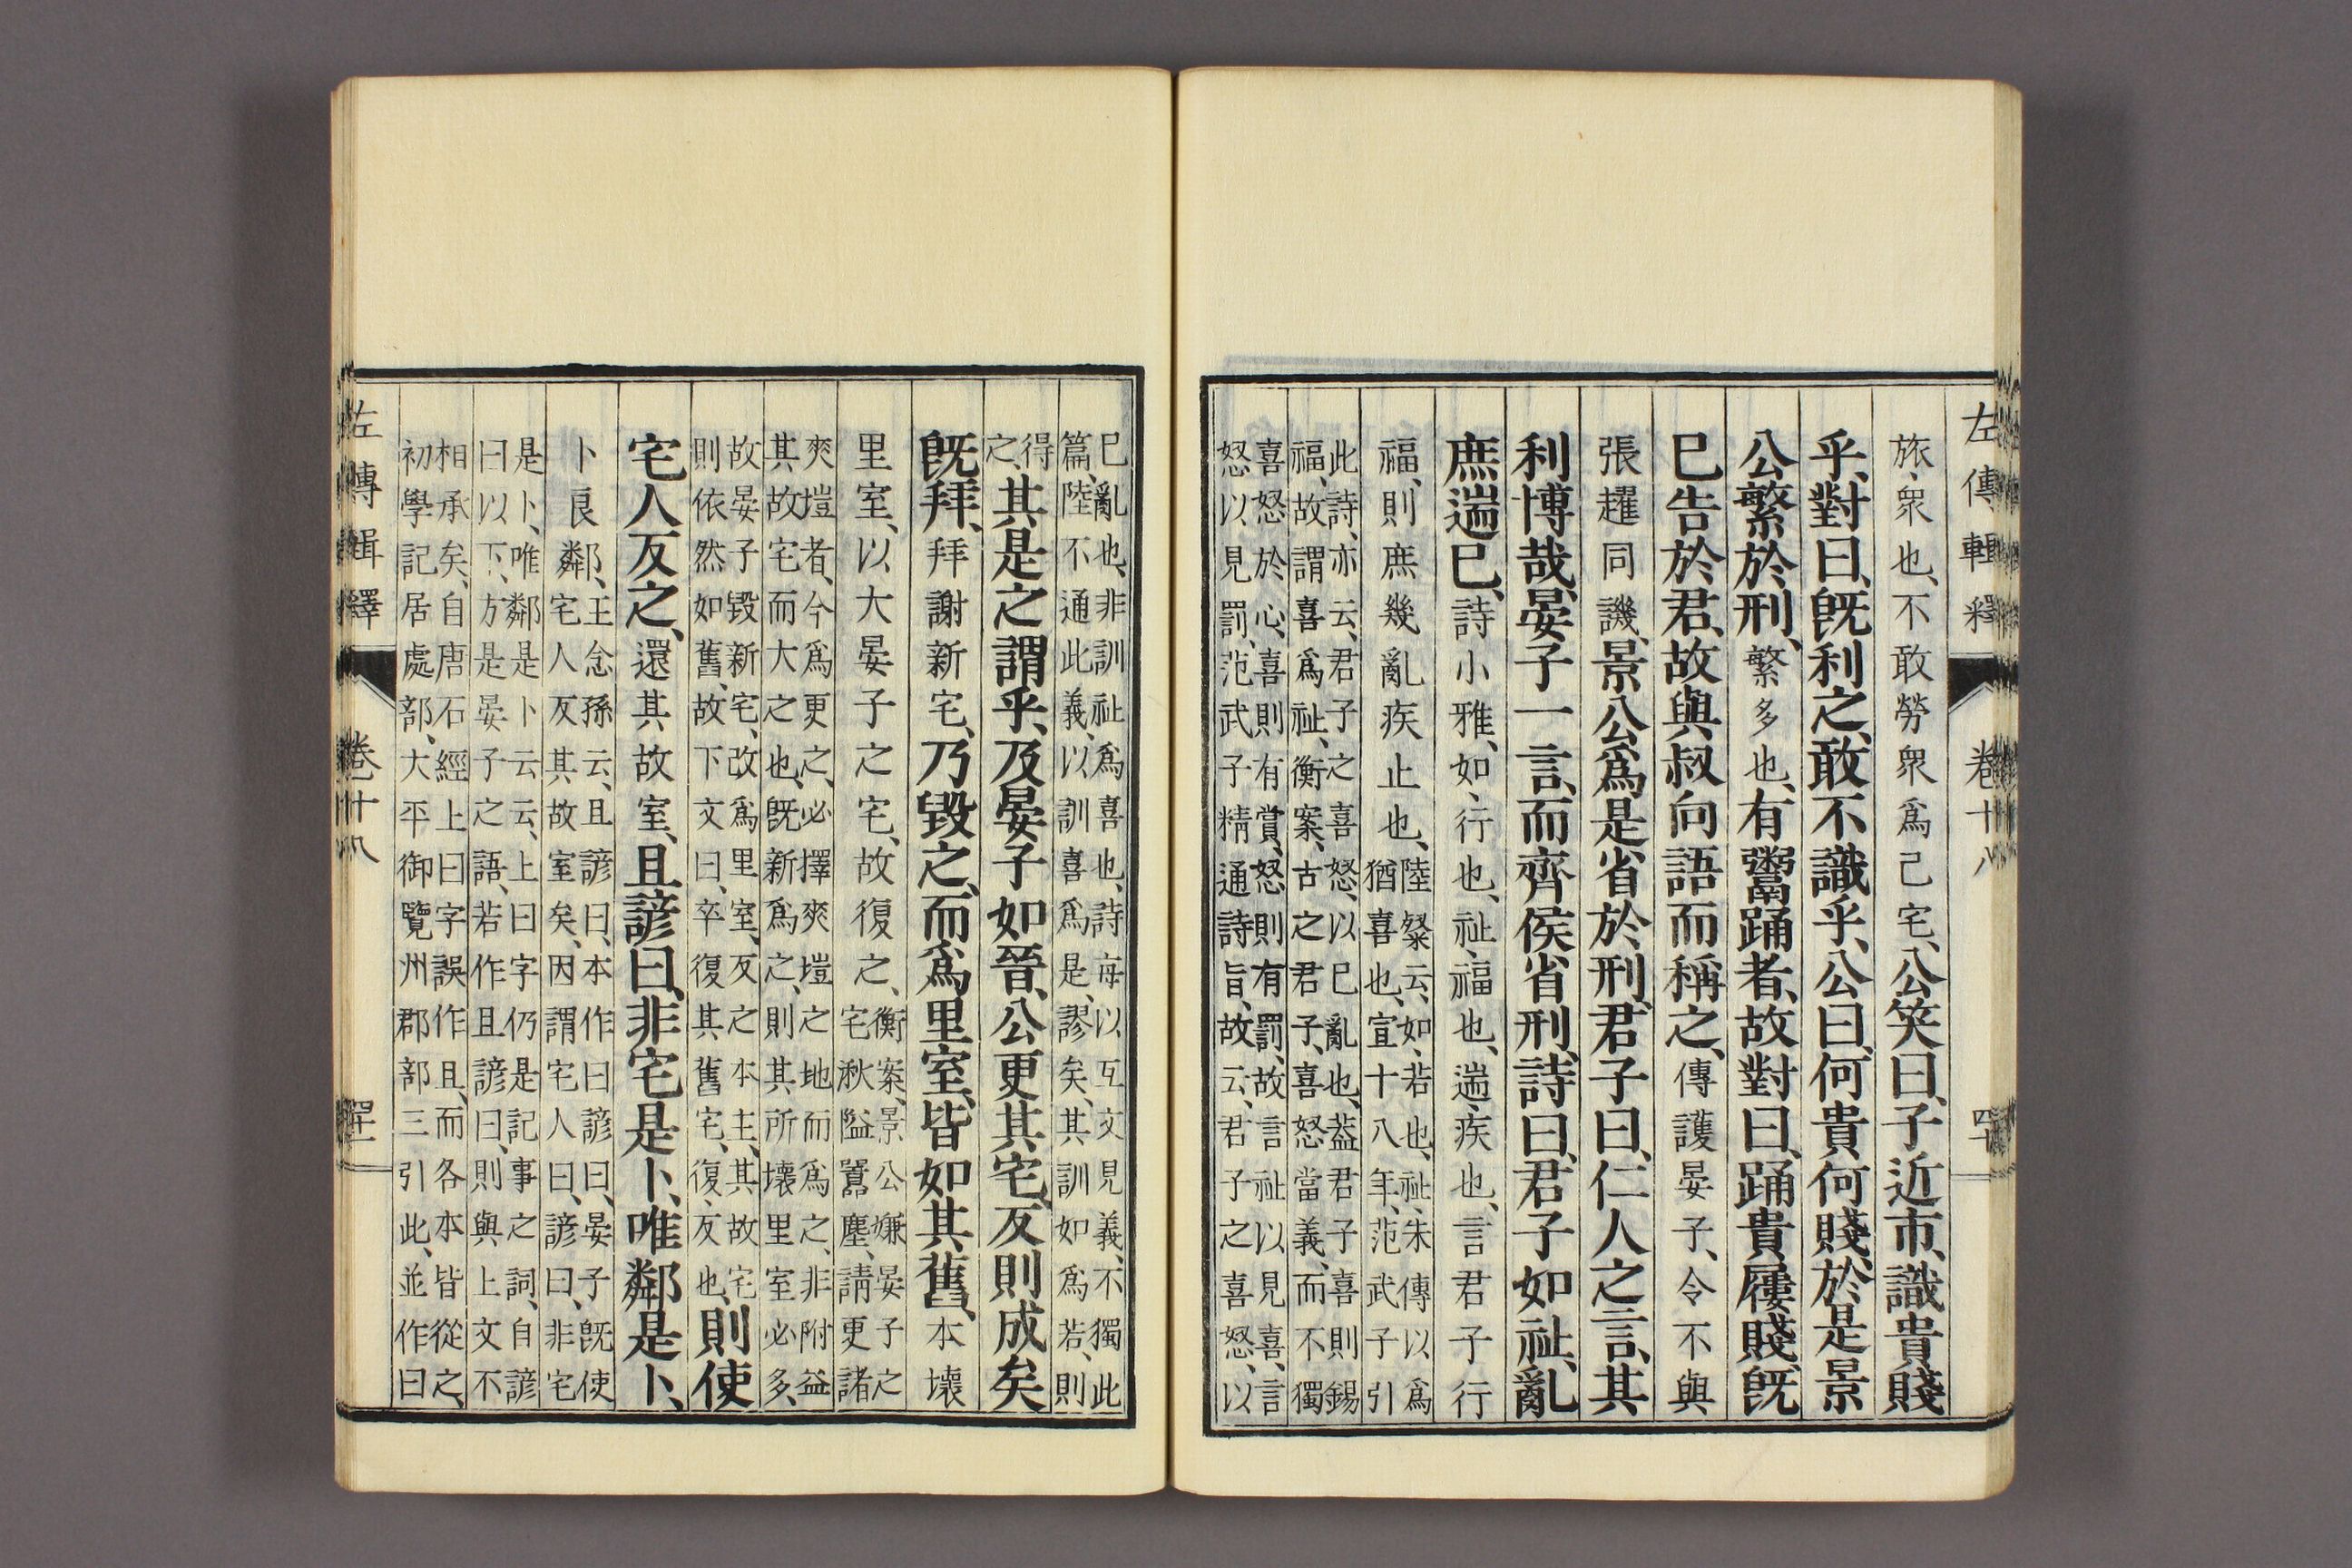 左傳輯釋 卷十八 四十
旅、衆也、不敢勞衆爲己宅、公笑曰、子近市、識貴賤
乎、對曰、旣利之、敢不識乎、公曰、何貴何賤、於是景
公繁於刑、繁多也、有鬻踊者、故對曰、踊貴屨賤、旣
已告於君、故與叔向語而稱之、傳護晏子、令不與
張趯同譏、景公爲是省於刑、君子曰、仁人之言、其
利博哉、晏子一言、而齊侯省刑、詩曰、君子如祉、亂
庶遄已、詩小雅、如、行也、祉、福也、遄、疾也、言君子行
福、則庶幾亂疾止也、陸粲云、如、若也、祉、朱傳以爲
猶喜也、宣十八年、范武子引
此詩、亦云、君子之喜怒、以已亂也、蓋君子喜則錫
福、故謂喜爲祉、衡案、古之君子、喜怒當義、而不獨
喜怒於心、喜則有賞、怒則有罰、故言祉以見喜、言
怒以見罰、范武子精通詩旨、故云、君子之喜怒、以
已亂也、非訓祉爲喜也、詩每以互文見義、不獨此
篇陸不通此義、以訓喜爲是、謬矣、其訓如爲若、則
得之、其是之謂乎、及晏子如晉、公更其宅、反則成矣
旣拜、拜謝新宅、乃毀之、而爲里室、皆如其舊、本壞
里室、以大晏子之宅、故復之、衡案、景公嫌晏子之
宅湫隘囂塵、請更諸
爽塏者、今爲更之、必擇爽塏之地而爲之、非附益
其故宅而大之也、旣新爲之、則其所壞里室必多、
故晏子毀新宅、改爲里室、反之本主、其故宅
則依然如舊、故下文曰、卒復其舊宅、復、反也、則使
宅人反之、還其故室、且諺曰、非宅是卜、唯鄰是卜、
卜良鄰、王念孫云、且諺曰、本作曰諺曰、晏子旣使
宅人反其故室矣、因謂宅人曰、諺曰、非宅
是卜、唯鄰是卜云云、上曰字仍是記事之詞、自諺
曰以下、方是晏子之語、若作且諺曰、則與上文不
相承矣、自唐石經上曰字誤作且、而各本皆從之、
初學記居處部、大平御覽州郡部三引此、並作曰
左傳輯釋 卷十八